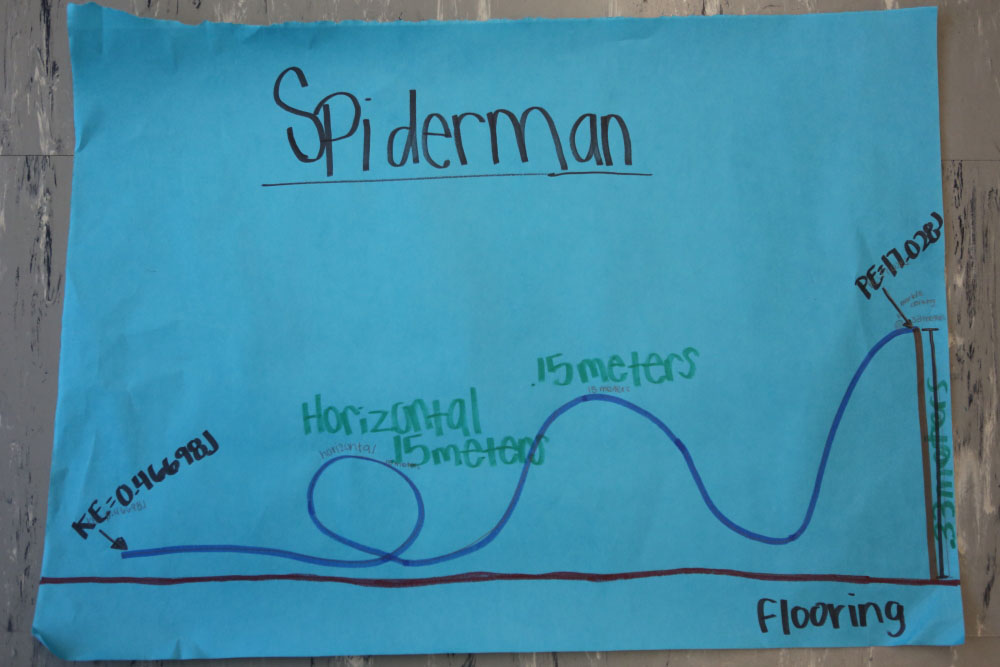 Spiderman
PE=17.028J
.15 meters
15 meters
Horizontal
.15 meters
horizontal
.33 meters
KE=0.46698J
Flooring